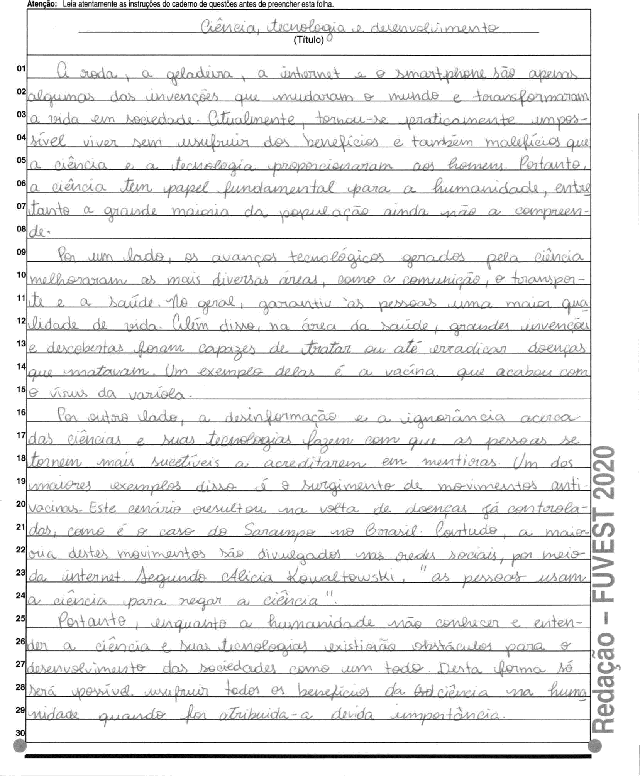 Atenção: Leia atentamente as instruções do caderno de questões antes de preencher esta folha.
Ciência, tecnologia e desenvolvimento
(Título)
01 A roda, a geladeira, a internet e o smartphone são apenas
02 algumas das invenções que mudaram o mundo e transformaram
03 a vida em sociedade. Atualmente, tornou-se praticamente impos-
04 sível viver sem usufruir dos benefícios e também malefícios que
05 a ciência e a tecnologia proporcionaram aos homens. Portanto,
06 a ciência tem papel fundamental para a humanidade, entre
07 tanto a grande maioria da população ainda não a compreen-
08 de.
09 Por um lado, os avanços tecnológicos gerados pela ciência
10 melhoraram as mais diversas áreas, como a comunição, o transpor-
11 te e a saúde. No geral, garantiu às pessoas uma maior qua
12 lidade de vida. Além disso, na área da saúde, grandes invenções
13 e descobertas foram capazes de tratar ou até erradicar doenças
14 que matavam. Um exemplo delas é a vacina que acabou com
15 o vírus da varíola.
16 Por outro lado, a desinformação e a ignorância acerca
17 das ciências e suas tecnologias fazem com que as pessoas se
18 tornem mais sucetíveis a acreditarem em mentiras. Um dos
19 maiores exemplos disso é o surgimento de movimentos anti-
20 vacinas. Este cenário resultou na volta de doenças já controla-
21 das, como é o caso do Sarampo no Brasil. Contudo, a maio-
22 ria destes movimentos são divulgados nas redes sociais, por meio
23 da internet. Segundo Alicia Kowaltowski, "as pessoas usam
24 a ciência para negar a ciência".
25 Portanto, enquanto a humanidade não conhecer e enten-
26 der a ciência e suas tecnologias existirão obstáculos para o
27 desenvolvimento das sociedades como um todo. Desta forma só
28 será possível usufruir todos os benefícios da ciência na huma
29 nidade quando for atribuida-a devida importância.
30
Redação – FUVEST 2020